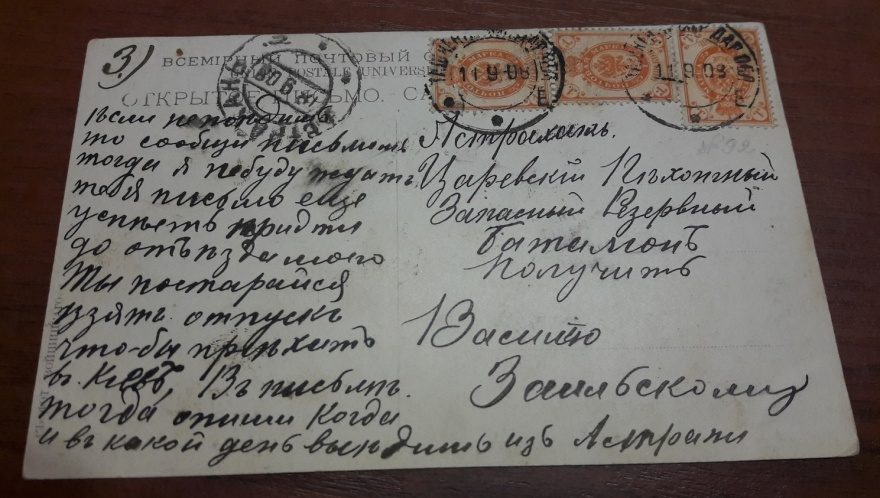 3)
ВСЕМІРНЫЙ ПОЧТОВЫЙ
POSTALE UNIVERSE
ОТКРЫТ
11 9 08
11 9 08
МАРКА
№ 92
Если
то сообщи письмомъ
тогда я небуду ждать
твоя писмо еще
успѣеть придти
до отъѣзда моего
Ты постарайся
взять отпускъ
что-бы пріѣхать
въ Кіевъ, Въ письмѣ
тогда опиши когда
и въ какой день выѣдишь изъ Астрани
Астрахань.
Царевскій Пѣхотный
Запасный Резервный
Баталіонъ
Получить
Василію
Заильскому